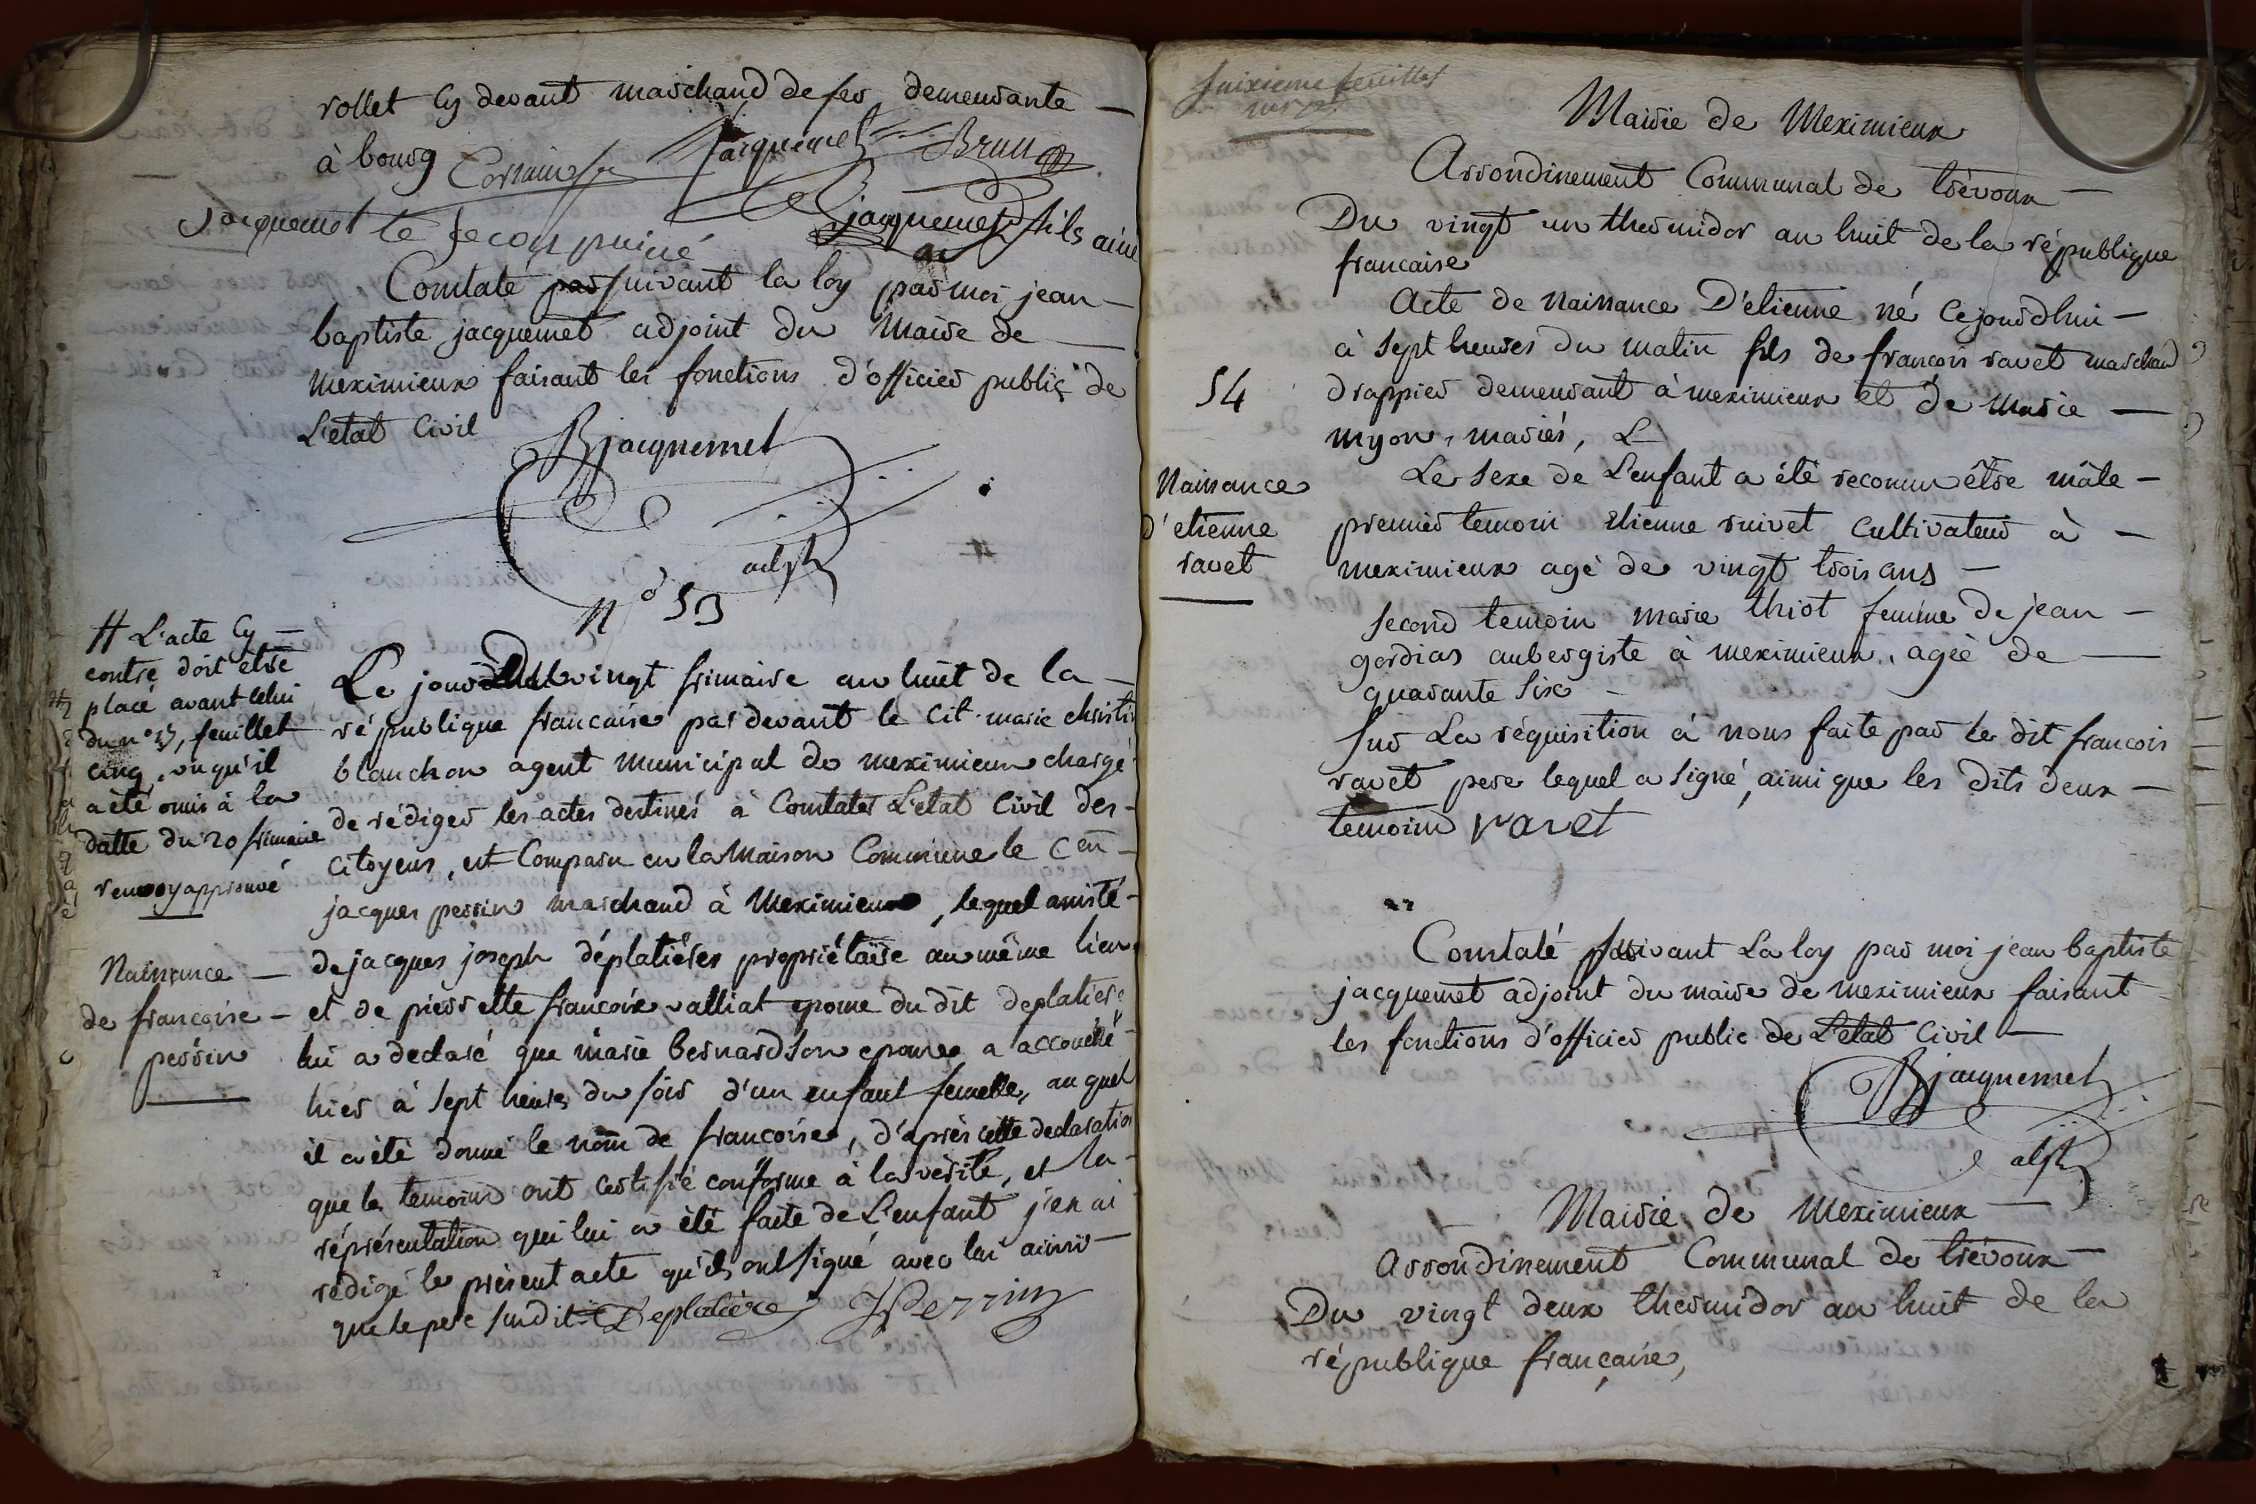 rollet cy devant marchand de fer demeurante —
à bourg Jacquemet Brun
Jacquemet le second puiné jacquemet fils ainé
Constaté par suivant la loy par moi jean —
baptiste jacquemet adjoint du Maire de —
meximieux faisant les fonctions d'officier public de
L'etat Civil
Bjacquemet
adjt
N° 53
# L'acte cy —
contre doit etre
placé avant celui
du n° 13, feuillet
cinq, vu qu'il
a été omis à la
datte du 20 frimaire
renvoy approuvé
Naissance —
de francoise —
perrin
Le jourdhui vingt frimaire an huit de la —
république francaise pardevant le cit. marie christin
blanchon agent municipal de meximieux chargé
de rédiger les actes destinés à Constater L'etat Civil des —
Citoyens, est Comparu en la Maison Commune le Cen —
jacques perrin marchand à Meximieux, lequel assisté —
de jacques joseph déplatières propriétaire au même lieu
et de pierrette francoise valliat epouse du dit deplatiere
lui a declaré que marie bernardson epouse a accouché
hier à sept heures du soir d'un enfant femelle, auquel
il a été donné le nom de francoise, d'après cette declaration
que les temoins ont certifié conforme à la vérité, et la —
répresentation qui lui a été faite de L'enfant j'en ai
redigé le présent acte qu'ils ont signé avec lui ainsi —
que le pere susdit. Deplatière JPerrin
sixieme feuillet
Mairie de Meximieux
Arrondissement Communal de trévoux —
Du vingt un thermidor an huit de la république
francaise
Acte de Naissance D'etienne né Cejourdhui —
à sept heures du matin fils de francois ravet marchand
54
drappier demeurant à meximieux et de Marie —
myon, mariés, L
Naissance
d'etienne
ravet
Le sexe de L'enfant a été reconnu être mâle —
premier temoin Etienne ruivet Cultivateur à —
meximieux agé de vingt trois ans —
second temoin marie thiot femme de jean —
gordias aubergiste à meximieux, agée de —
quarante six —
Sur La réquisition à nous faite par le dit francois
ravet pere lequel a signé, ainsi que les dits deux —
temoins ravet
Constaté suivant La loy par moi jean baptiste
jacquemet adjoint du maire de meximieux faisant
les fonctions d'officier public de L'etat Civil —
Bjacquemet
adjt
Mairie de Meximieux —
arrondissement Communal de trévoux —
Du vingt deux thermidor an huit de la
république française,